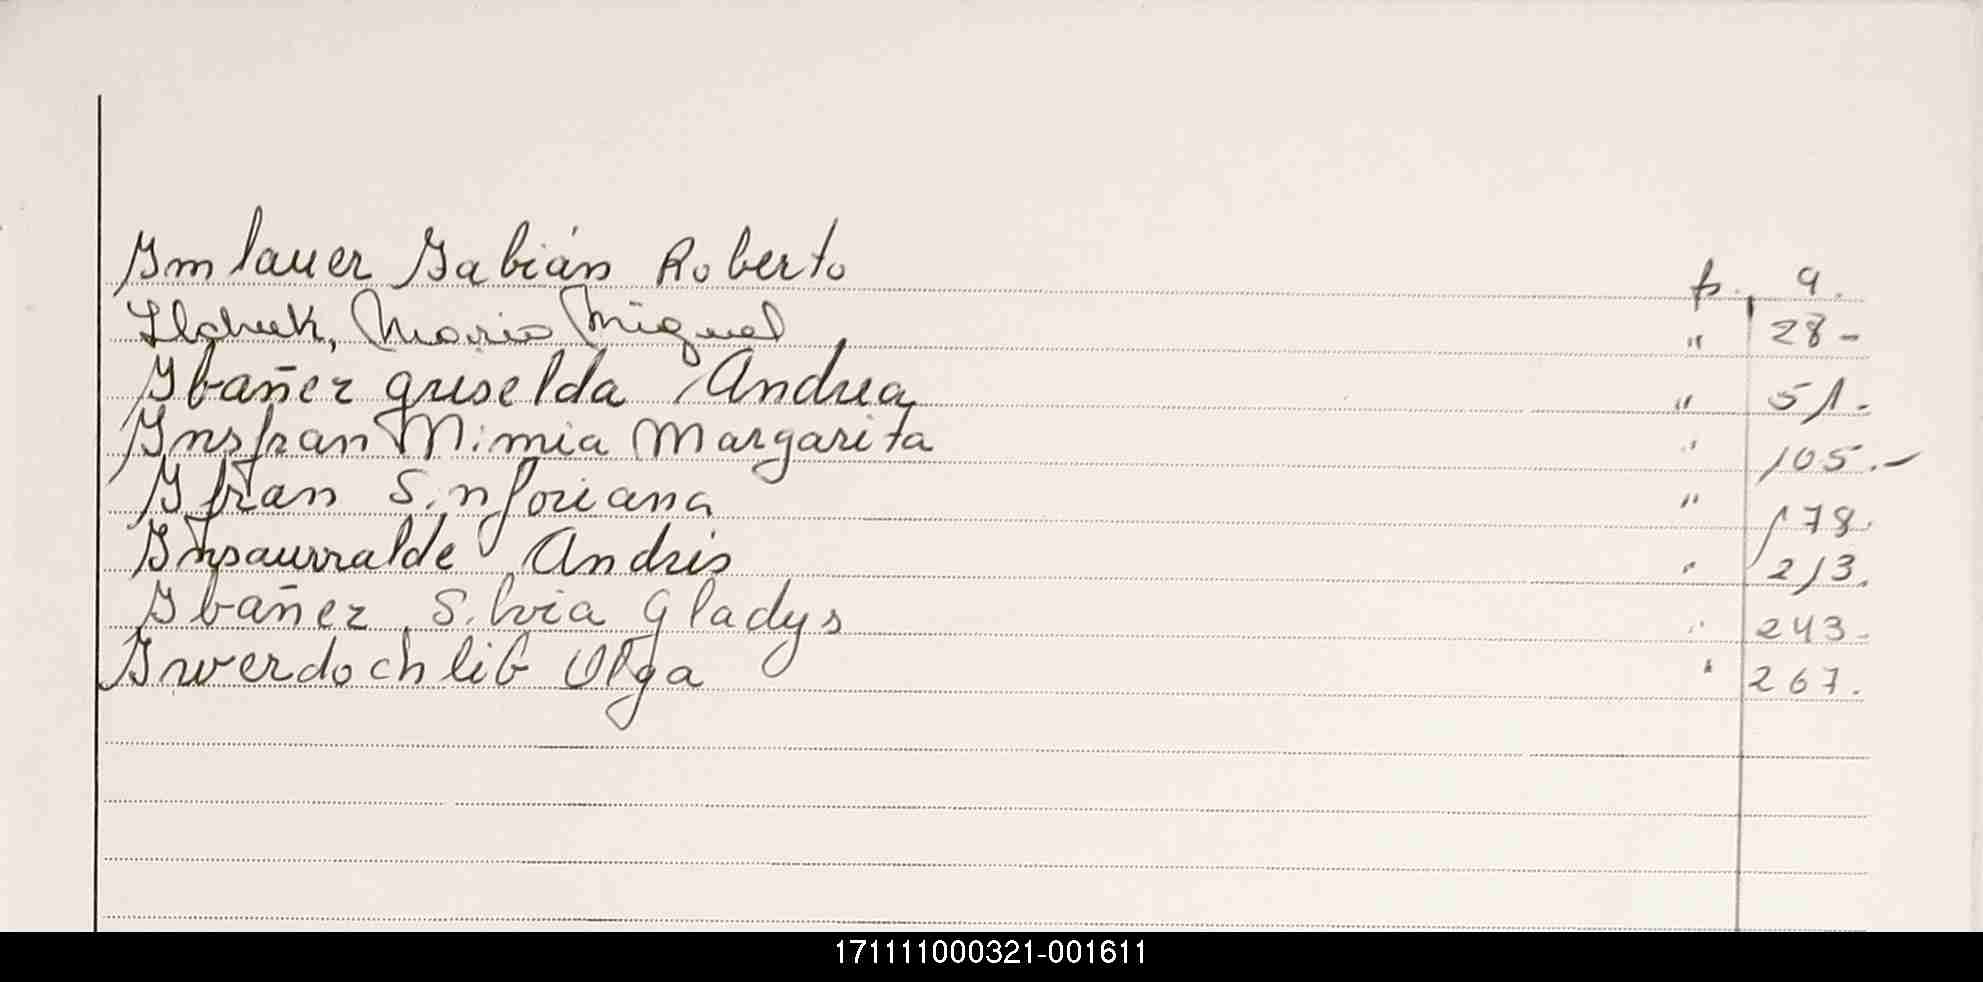 Imlauer Fabián Roberto f. 9.
Ilchuk, Mario Miguel " 28-
Ibañez Griselda Andrea " 51.
Insfran Mimia Margarita " 105.-
Ifran Sinforiana " 178.
Insaurralde Andrés " 213.
Ibañez Silvia Gladys " 243.
Iwerdochlib Olga " 267.
171111000321-001611